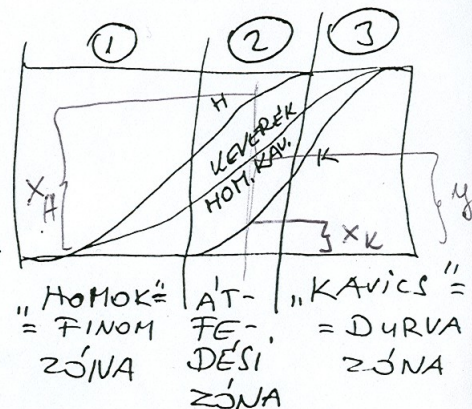 1 2 3
H
KEVERÉK
HOM. KAV.
K
X_H
y
X_K
„HOMOK"=
= FINOM
ZÓNA
ÁT-
FE-
DÉSI
ZÓNA
„KAVICS"=
= DURVA
ZÓNA